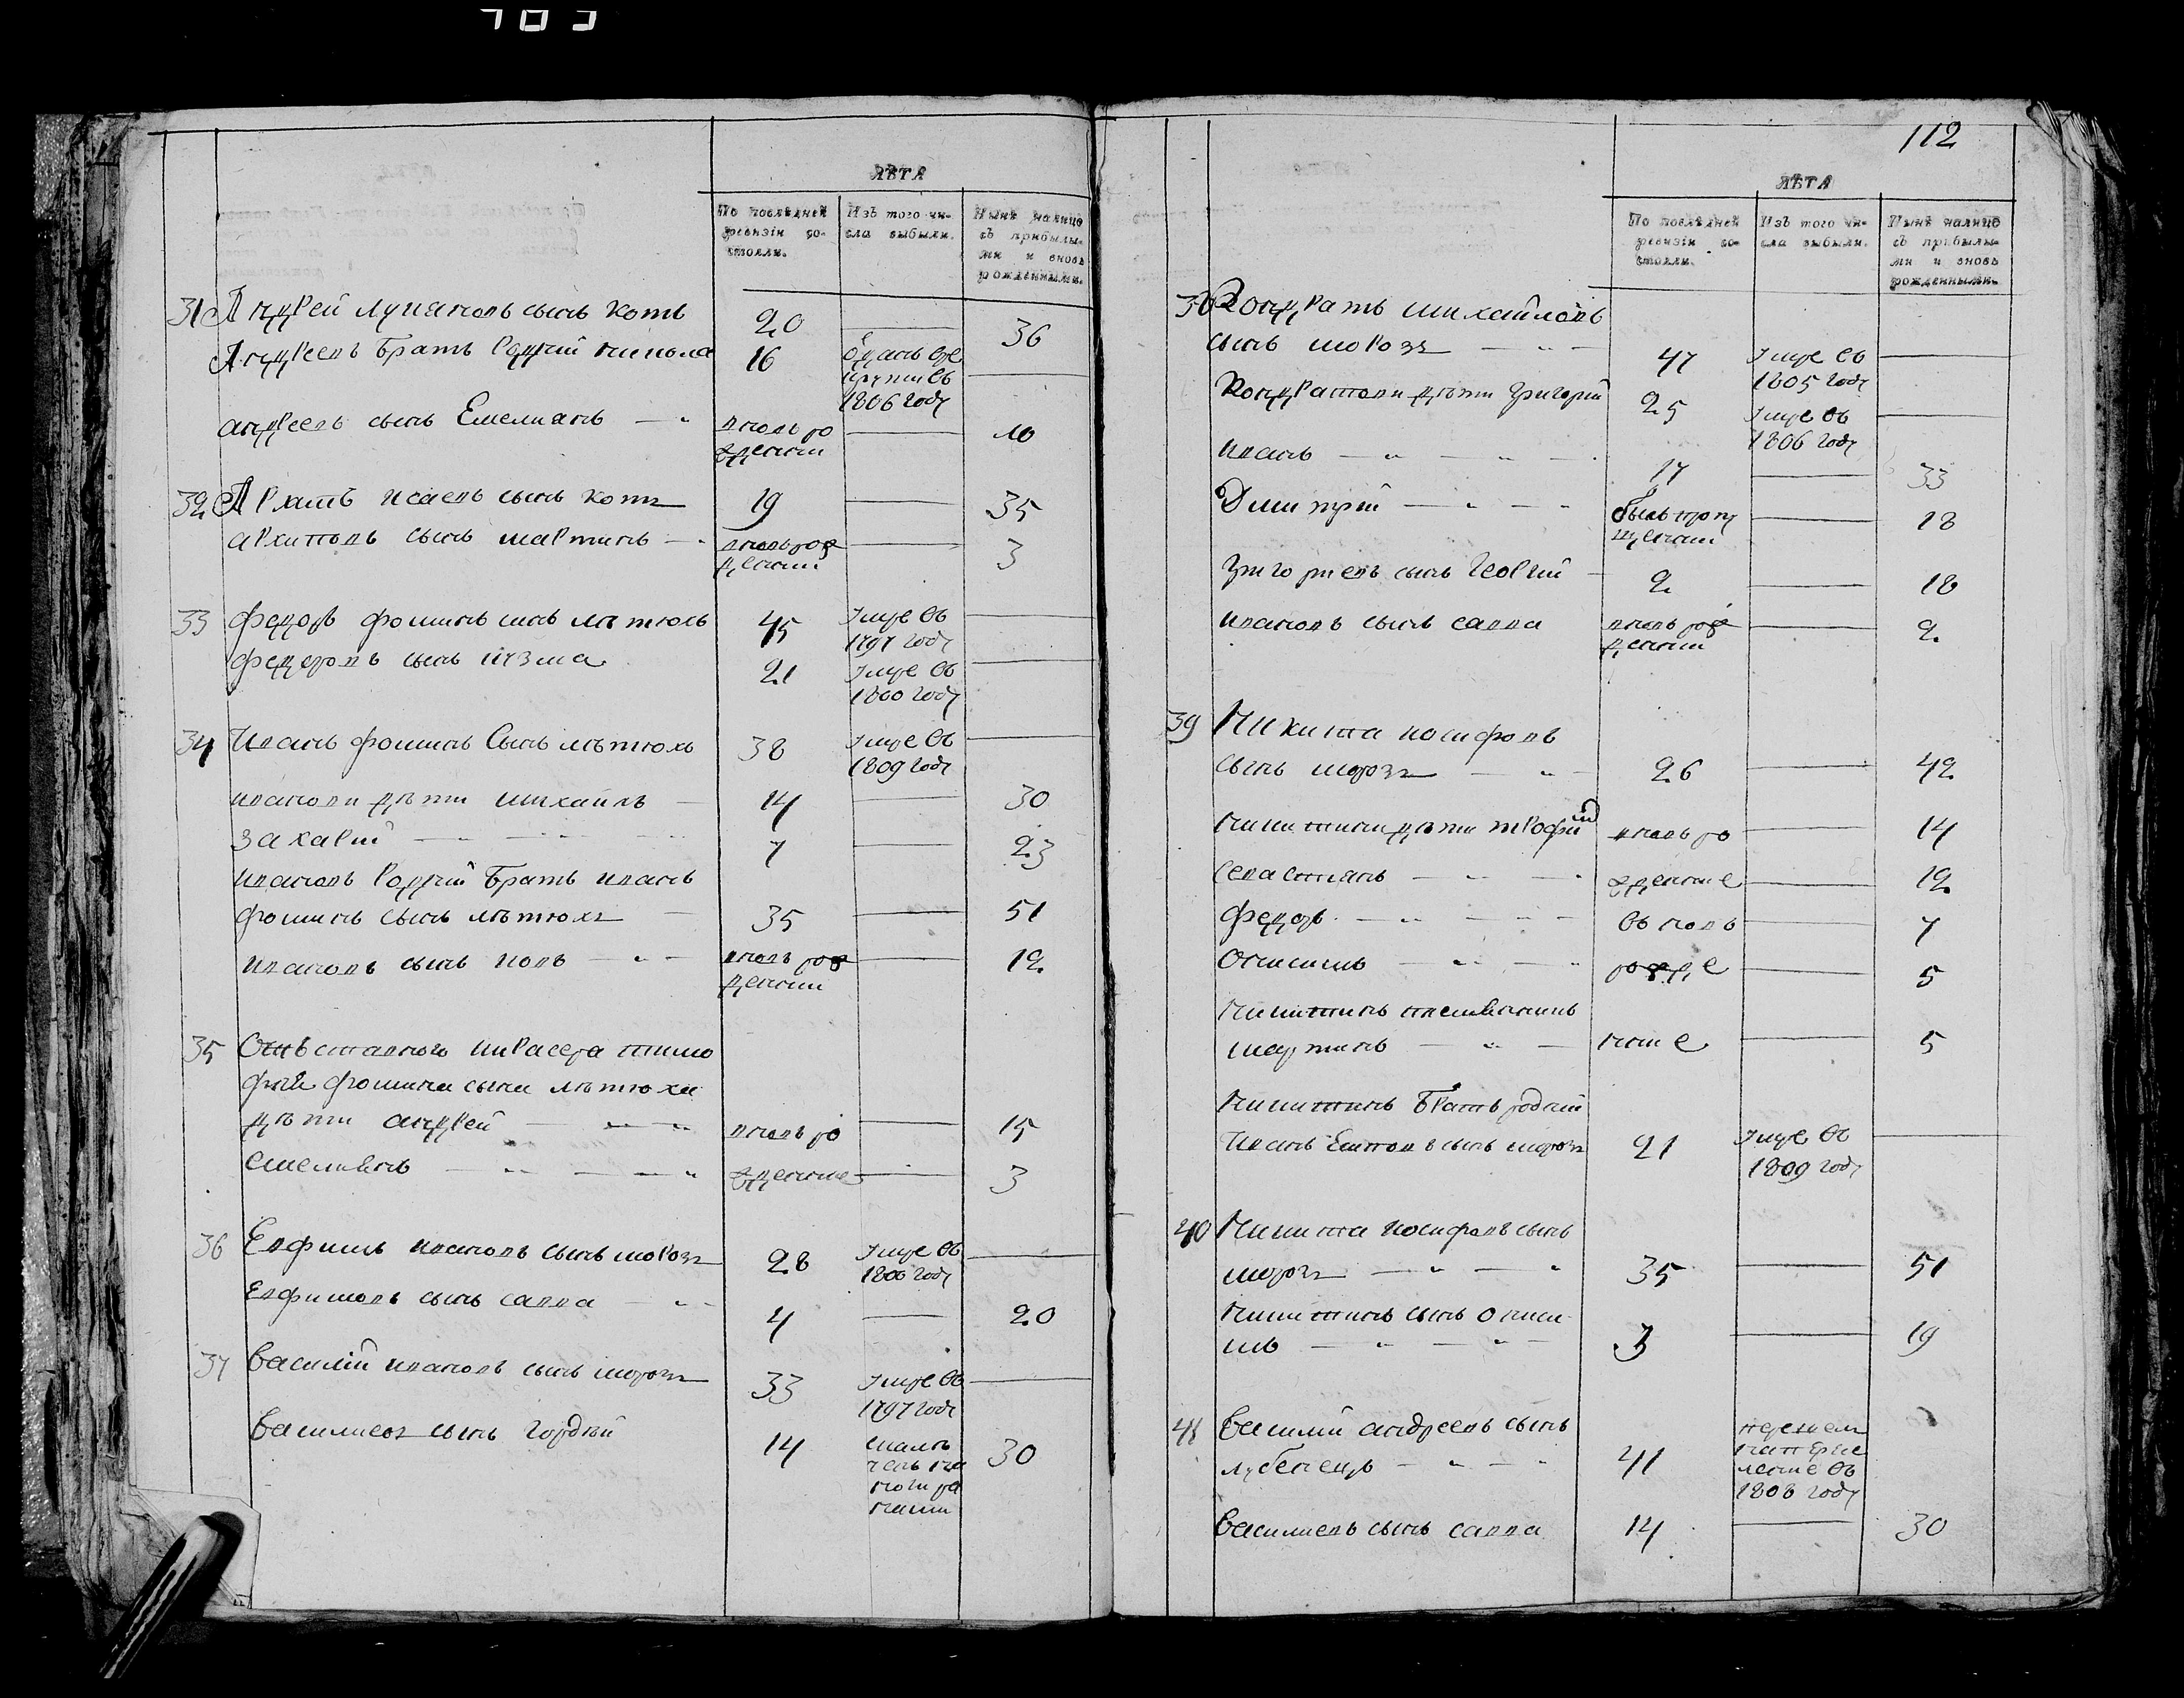 ЛѢТА
По послѣдней ревизіи состояли.
Изъ того числа выбыли.
Нынѣ налицо съ прибылыми и вновь рожденными.
31 Андрей Лукановъ сынъ котъ 20 — 36
Андреевъ братъ родний никола 16 отданъ вре
крути въ
1806 году —
андреевъ сынъ Емелианъ — вновь ро
жденнии — 10
32 Архипъ исаевъ сынъ котъ 19 — 35
архиповъ сынъ мартинъ — вновь рож
деннии — 3
33 федоръ фоминъ синъ мѣтюхъ 45 умре въ
1797 году —
федоровъ сынъ кузма 21 умре въ
1800 году —
34 Иванъ фоминъ Сынъ мѣтюхъ 38 умре въ
1809 году —
ивановы дѣти михаилъ — 14 — 30
захарій — 7 — 23
ивановъ родний братъ иванъ
фоминъ сынъ мѣтюхъ — 35 — 51
ивановъ сынъ иовъ — вновь рож
деннии — 12
35 Отъставного тимо
фея фомина сына мѣтюхи
дѣти андрей — вновь ро — 15
емелианъ — жденние — 3
36 Евфимъ ивановъ сынъ морозъ 28 умре въ
1800 году —
Евфимовъ сынъ савва — 4 — 20
37 василій ивановъ сынъ морозъ 33 умре въ
1797 году —
василиевъ сынъ гордий 14 30
112
ЛѢТА
По послѣдней ревизіи состояли.
Изъ того числа выбыли.
Нынѣ налицо съ прибылыми и вновь рожденными.
38 Кондратъ михайловъ
сынъ морозъ — 47 умре въ
1805 году —
Кондратови дѣти григорий 25 умре въ
1806 году —
иванъ — 17 — 33
Дмитрий — былъ пропу
щеннии — 18
григориевъ сынъ георгий — 2 — 18
ивановъ сынъ савва вновь рож
деннии — 2
39 Никита иосифовъ
сынъ морозъ — 26 — 42
никитини дѣти трофим вновь ро — 14
севастианъ — жденние — 12
федоръ — въновь — 7
Онисимъ — рожде — 5
никитинъ племѣнникъ
мартинъ — ние — 5
никитинъ братъ родний
Иванъ сынъ морозъ 21 умре въ
1809 году —
40 Никита иосифовъ сынъ
морозъ — 35 — 51
никитинъ сынъ ониси
мъ — 3 — 19
41 василий андреевъ сынъ
лубенецъ — 41 1808 году
василиевъ сынъ савва 14 — 30